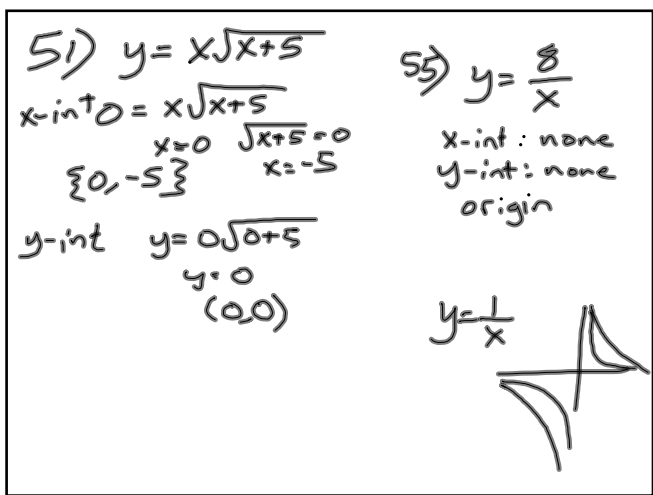 51) y = x√x+5
x-int 0 = x√x+5
x=0 √x+5 = 0
x=-5
{0,-5}
y-int y= 0√0+5
y= 0
(0,0)
55) y= 8/x
x-int: none
y-int: none
origin
y=1/x